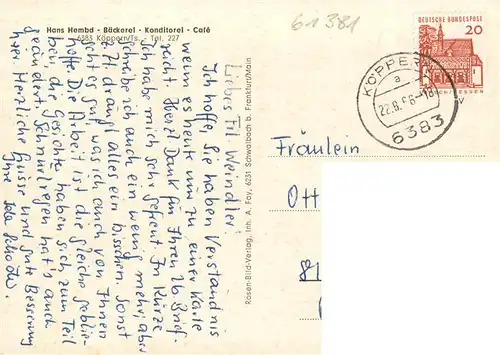 Hans Hembd - Bäckerei - Konditorei - Café
6383 Köppern/Ts. - Tel. 227
61 381
DEUTSCHE BUNDESPOST
20
KÖPPERN
a
6383
Liebes Frl. Weindler!
Ich hoffe, Sie haben Verständnis
wenn es heute nur zu einer Karte
reicht. Herzl. Dank für Ihren lb. Brief.
Ich habe mich sehr gefreut. In Kürze
schreibe ich auch ein wenig mehr, aber
z. Zt. drängt alles ein bisschen. Sonst
geht es gut, was ich auch von Ihnen
hoffe. Die Arbeit ist die gleiche geblie-
ben, die Gesichter haben sich zum Teil
geändert. Schnürlregen hat's auch
hier. Herzliche Grüsse und gute Besserung
Ihre
Rosen-Bild-Verlag, Inh. A. Fay, 6231 Schwalbach b. Frankfurt/Main
Fräulein
Ott